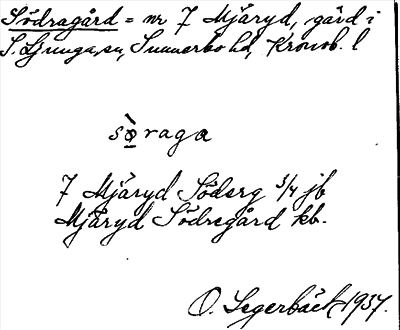 Södragård = nr 7 Mjäryd, gård i
S. Ljunga sn, Sunnerbo hd, Kronob. l
sø̀raga
7 Mjäryd Söderg 3/4 jb
Mjäryd Södregård kb.
O. Segerbäck 1937.